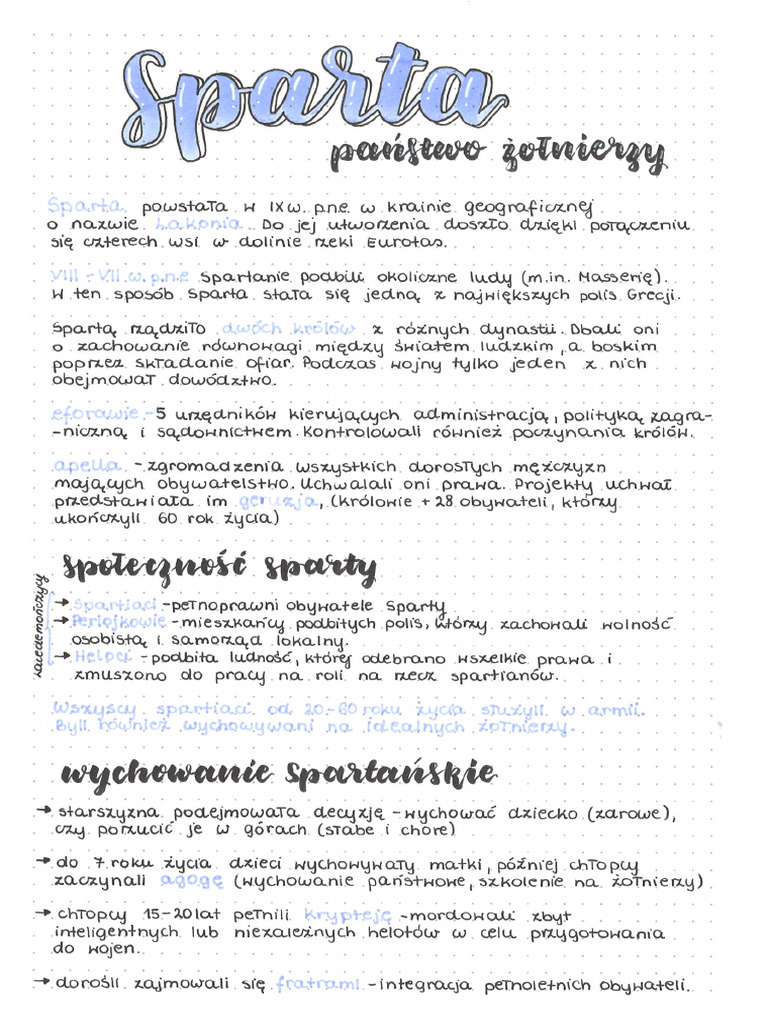 Sparta
państwo żołnierzy
Sparta powstała w IX w. p.n.e. w krainie geograficznej
o nazwie Lakonia. Do jej utworzenia doszło dzięki połączeniu
się czterech wsi w dolinie rzeki Eurotas.
VIII-VII w. p.n.e Spartanie podbili okoliczne ludy (m.in. Massenię).
W ten sposób Sparta stała się jedną z największych polis Grecji.
Spartą rządziło dwóch królów z różnych dynastii. Dbali oni
o zachowanie równowagi między światem ludzkim, a boskim
poprzez składanie ofiar. Podczas wojny tylko jeden z nich
obejmował dowództwo.
eforowie - 5 urzędników kierujących administracją, polityką zagra-
-niczną i sądownictwem. Kontrolowali również poczynania królów.
apella - zgromadzenia wszystkich dorosłych mężczyzn
mających obywatelstwo. Uchwalali oni prawa. Projekty uchwał
przedstawiała im geruzja, (królowie + 28 obywateli, którzy
ukończyli 60 rok życia)
społeczność sparty
Lacedemończycy
→ Spartiaci - pełnoprawni obywatele Sparty
→ Periojkowie - mieszkańcy podbitych polis, którzy zachowali wolność
osobistą i samorząd lokalny.
→ Heloci - podbita ludność, której odebrano wszelkie prawa i
zmuszono do pracy na roli na rzecz spartianów.
Wszyscy spartiaci od 20-60 roku życia służyli w armii.
Byli również wychowywani na idealnych żołnierzy.
wychowanie spartańskie
→ starszyzna podejmowała decyzję - wychować dziecko (zdrowe),
czy porzucić je w górach (słabe i chore)
→ do 7 roku życia dzieci wychowywały matki, później chłopcy
zaczynali agogę (wychowanie państwowe, szkolenie na żołnierzy)
→ chłopcy 15-20 lat pełnili krypteję - mordowali zbyt
inteligentnych lub niezależnych helotów w celu przygotowania
do wojen.
→ dorośli zajmowali się fratrami - integracja pełnoletnich obywateli.